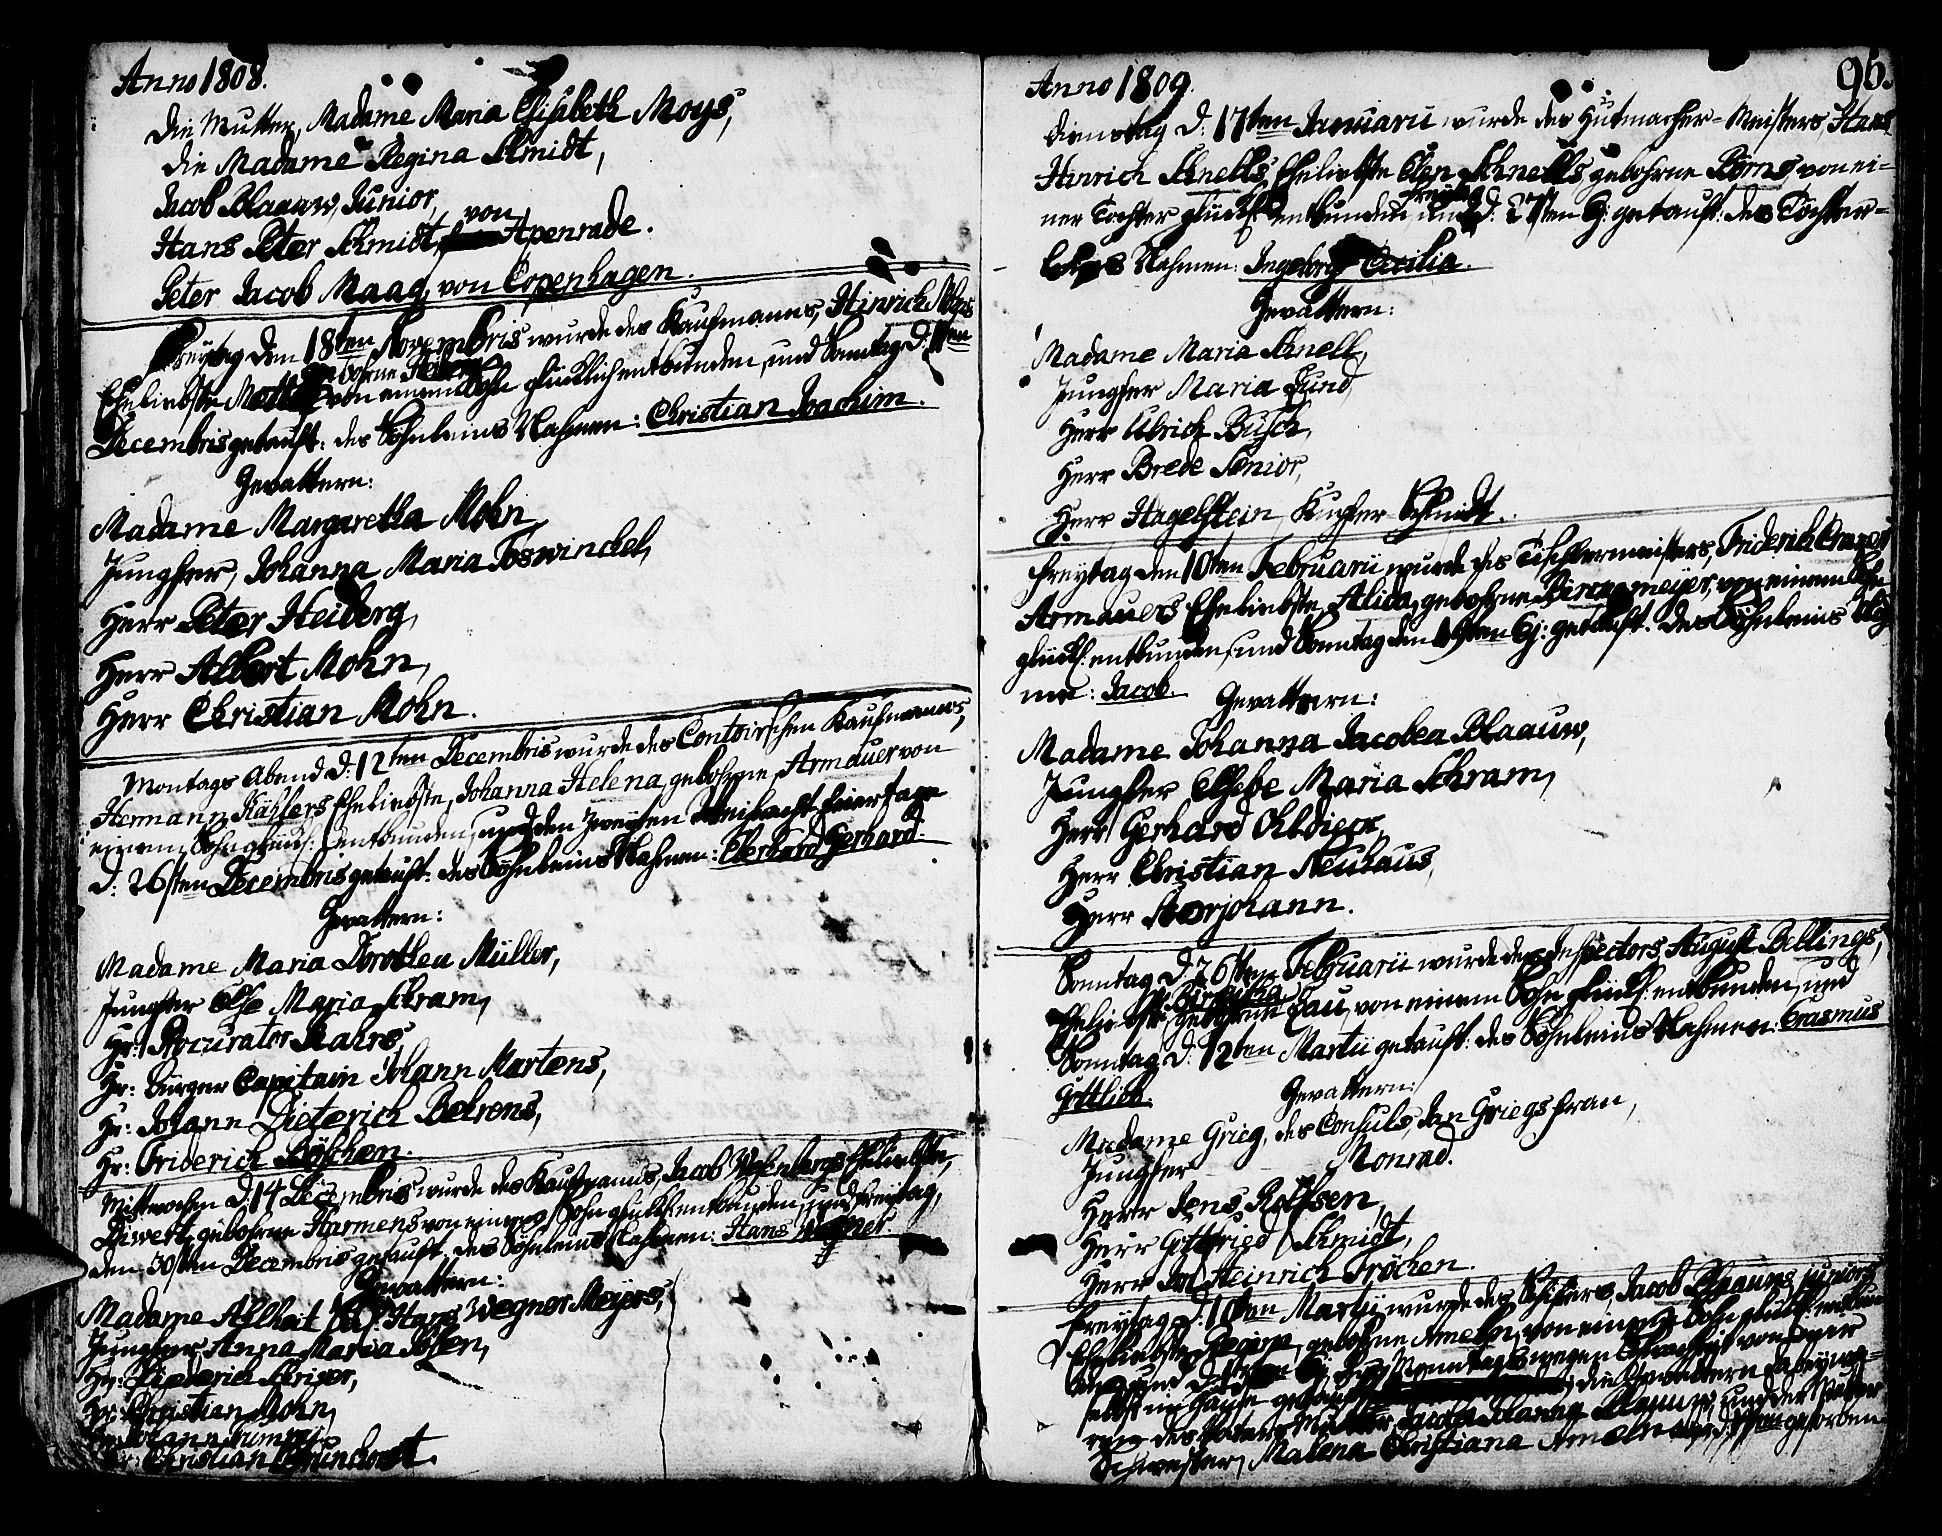 Anno 1808.
Die Mutter, Madame Maria Elisabeth Moys,
die Madame Regina Schmidt,
Jacob Blaauw, Junior,
Hans Peter Schmidt, von Apenrade.
Peter Jacob Maag, von Copenhagen.
Freytag den 18ten Novembris wurde des Kaufmanns, Hinrich Mohns
Eheliebste gebohrne von einem Sohn glücklich entbunden, und Sonntag d: 11ten
Decembris getauft: des Söhnleins Nahmen: Christian Joachim.
Gevattern:
Madame Margaretha Mohn,
Jungfer, Johanna Maria Toswinckel,
Herr Peter Heiberg,
Herr Albert Mohn,
Herr Christian Mohn.
Montags Abend d: 12ten Decembris wurde des Contoirschen Kaufmanns,
Hermann Kahlers Eheliebste, Johanna Helena, gebohrne Armauer von
einem Sohn glückl: entbunden, und den zweyten Weihnacht Feiertage
d: 26sten Decembris getauft: des Söhnleins Nahmen: Eberhard Gerhard.
Gevattern:
Madame Maria Dorothea Müller,
Jungfer Else Maria Schram,
Hr: Procurator Rahrs,
Hr: Bürger Capitain Johann Martens,
Hr: Johann Dieterich Behrens,
Hr: Friderich Böschen.
Mittwochen d: 14 Decembris wurde des Kaufmanns, Jacob Eheliebste,
Diwert, gebohrne Harmens von einem Sohn glückl: entbunden, und Freytag,
den 30sten Decembris getauft. des Söhnleins Nahmen: Hans Wegner.
Gevattern:
Madame Alheit Hans Wegner Meyers,
Jungfer Anna Maria
Hr: Diederich
Hr: Christian Mohn,
Hr: Johann
Hr: Christian
96.
Anno 1809.
Dienstag d: 17ten Januarii wurde des Hutmacher-Meisters, Hans
Hinrich Schnells, Eheliebste Elen Schnells, gebohrne Börns, von ei-
ner Tochter glückl: entbunden, und Freytag d: 27sten Ej: getauft: des Töchter-
leins Nahmen: Ingeborg Cecilia.
Gevattern:
Madame Maria Schnell,
Jungfer Maria Lund,
Herr Ulrich Busch,
Herr Brede Senior,
Herr Hagelstein, Kupfer-Schmidt.
Freytag den 10ten Februarii wurde des Tischlermeisters, Friderich
Armauers Eheliebste, Alida, gebohrne von einem Sohn
glückl: entbunden, und Sonntag den 19ten Ej: getauft. des Söhnleins Nah-
me: Jacob.
Gevattern:
Madame Johanna Jacobea Blaauw,
Jungfer Elsebe Maria Schram,
Herr Gerhard
Herr Christian Neuhaus,
Herr Storjohann.
Sonntag d: 26sten Februarii wurde des Inspectors, August Billings,
Eheliebste gebohrne Fau, von einem Sohn glückl: entbunden, und
Sonntag d: 12ten Martii getauft: des Söhnleins Nahmen: Erasmus
Gottlieb.
Gevattern:
Madame Grieg, des Consuls, Jan Griegs Frau,
Jungfer Monrad.
Herr Jens Rolfsen,
Herr Gottfried Schmidt,
Herr Joh Heinrich Fröchen.
Freytag d: 10ten Martii wurde des Schiffers, Jacob Blaauws, juniors,
Eheliebste, gebohrne Ameln, von einem Sohn glückl: entbun-
den, und d: Ej: wegen Schwachheit von
selbst im Hause getauft die Gevattern dabey wa-
ren des Vaters Mutter Jacobea Johanna Blaauw, und der Mutter
Schwester, Malena Christiana Ameln gestorben